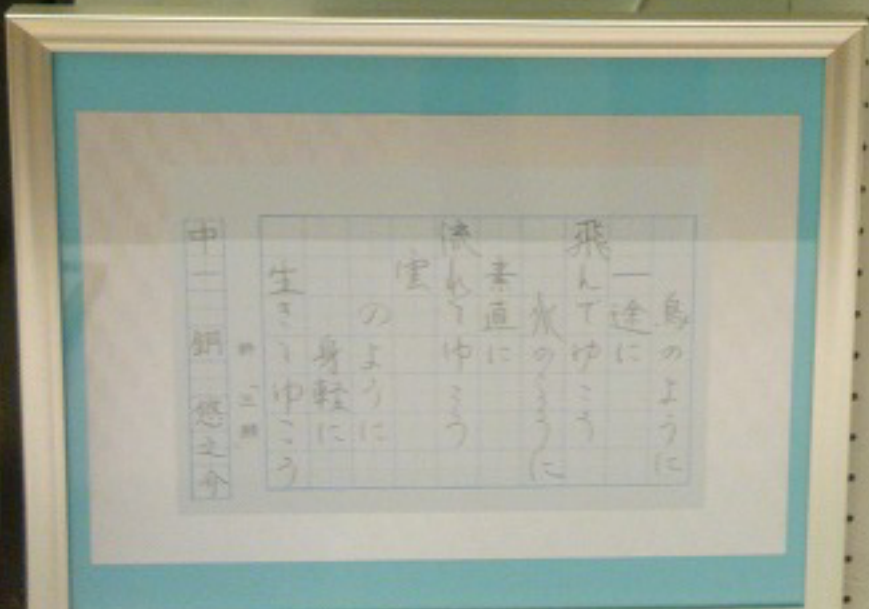 鳥のように
一途に
飛んでゆこう
水のように
素直に
流れてゆこう
雲
のように
身軽に
生きてゆこう
詩「三願」
中一 銅 悠之介